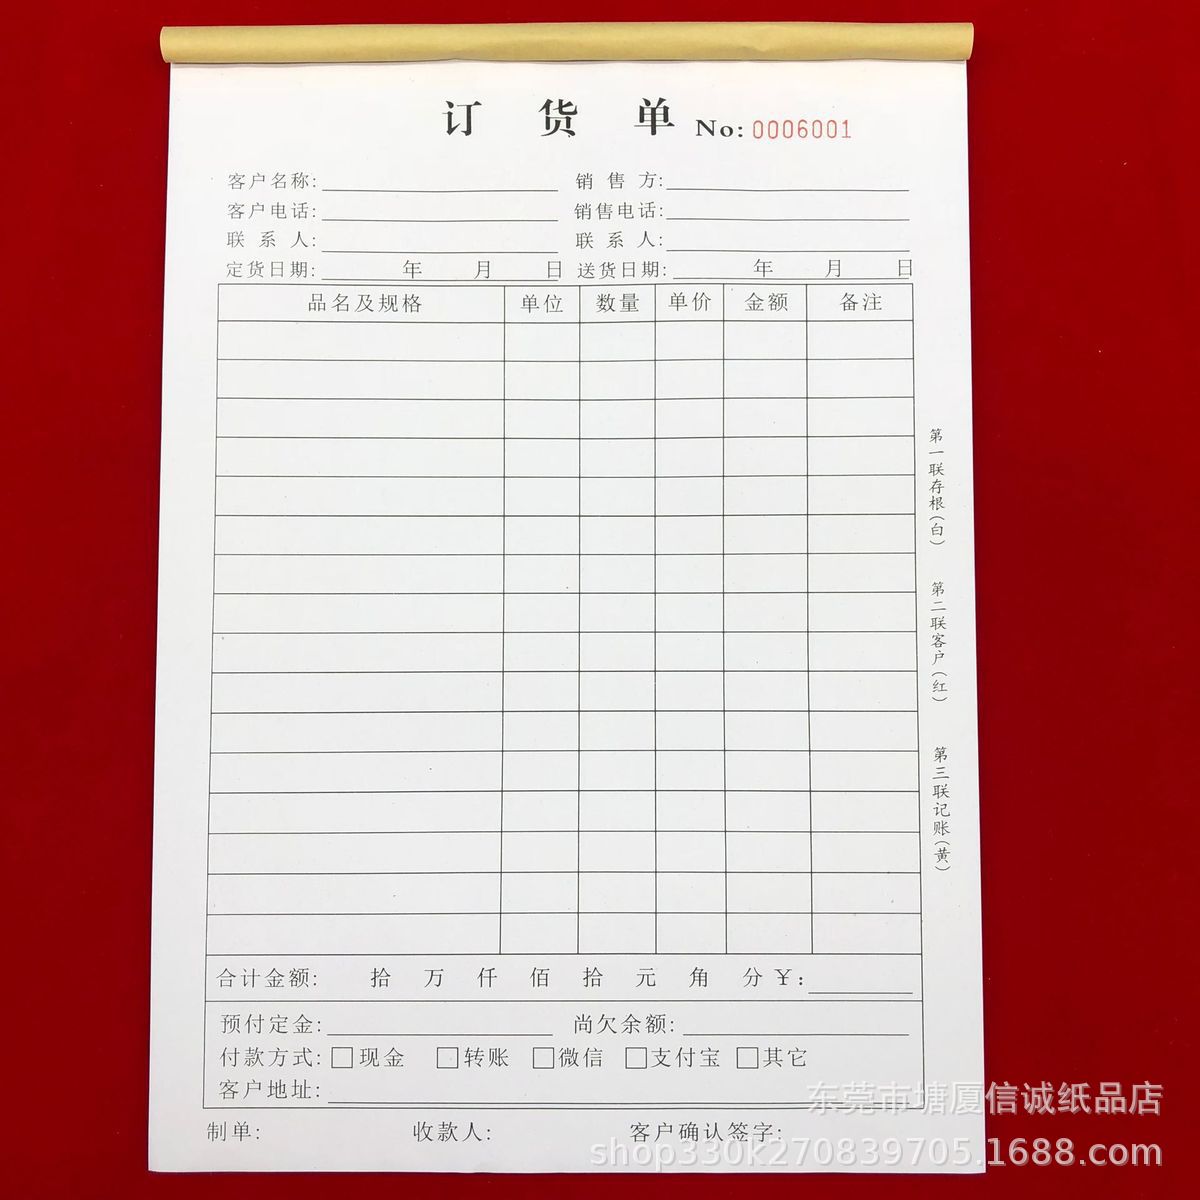 订货单 No: 0006001
客户名称: 销售方:
客户电话: 销售电话:
联系人: 联系人:
定货日期: 年 月 日 送货日期: 年 月 日
品名及规格 单位 数量 单价 金额 备注
第一联存根(白)
第二联客户(红)
第三联记账(黄)
合计金额: 拾 万 仟 佰 拾 元 角 分 ¥:
预付定金: 尚欠余额:
付款方式: □现金 □转账 □微信 □支付宝 □其它
客户地址:
制单: 收款人: 客户确认签字:
东莞市塘厦信诚纸品店
shop330k270839705.1688.com